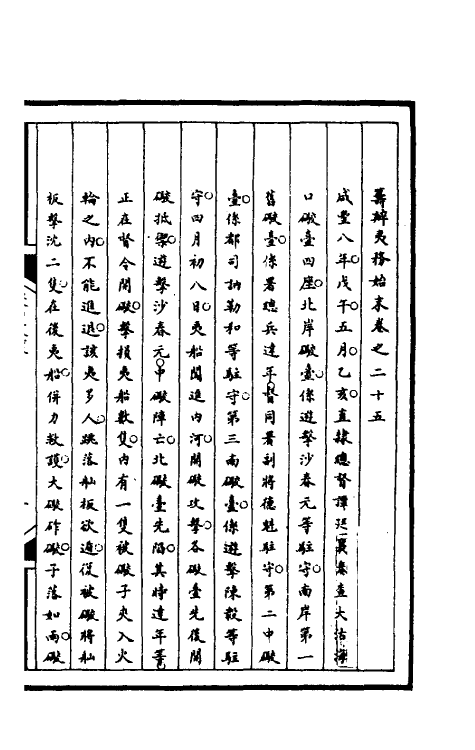 籌辦夷務始末卷之二十五
咸豐八年戊午五月乙亥直隸總督譚廷襄奏查大沽海
口礮臺四座北岸礮臺係遊擊沙春元等駐守南岸第一
舊礮臺係署總兵達年督同署副將德魁駐守第二中礮
臺係都司訥勒和等駐守第三南礮臺係遊擊陳毅等駐
守四月初八日夷船闖進內河開礮攻擊各礮臺先後開
礮抵禦遊擊沙春元中礮陣亡北礮臺先陷其時達年等
正在督令開礮擊損夷船數隻內有一隻被礮子夾入火
輪之內不能進退該夷多人跳落舢板欲遁復被礮將舢
板擊沈二隻在後夷船併力救護大礮炸礮子落如雨礮